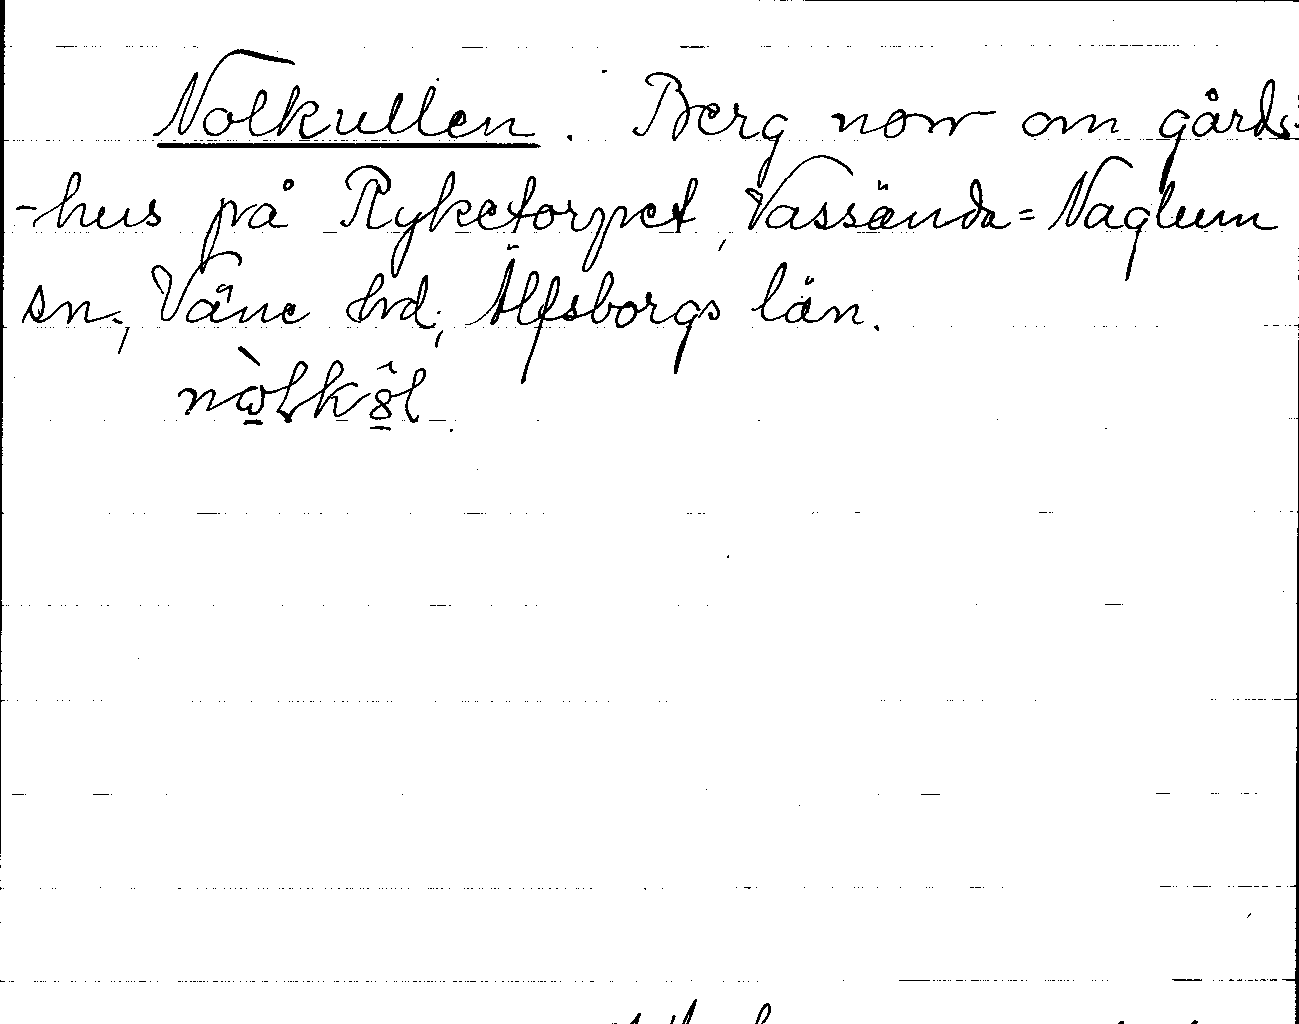 Nolkullen. Berg norr om gårds-
-hus på Ryketorpet, Vassända=Naglum
sn., Väne hrd., Älfsborgs län.